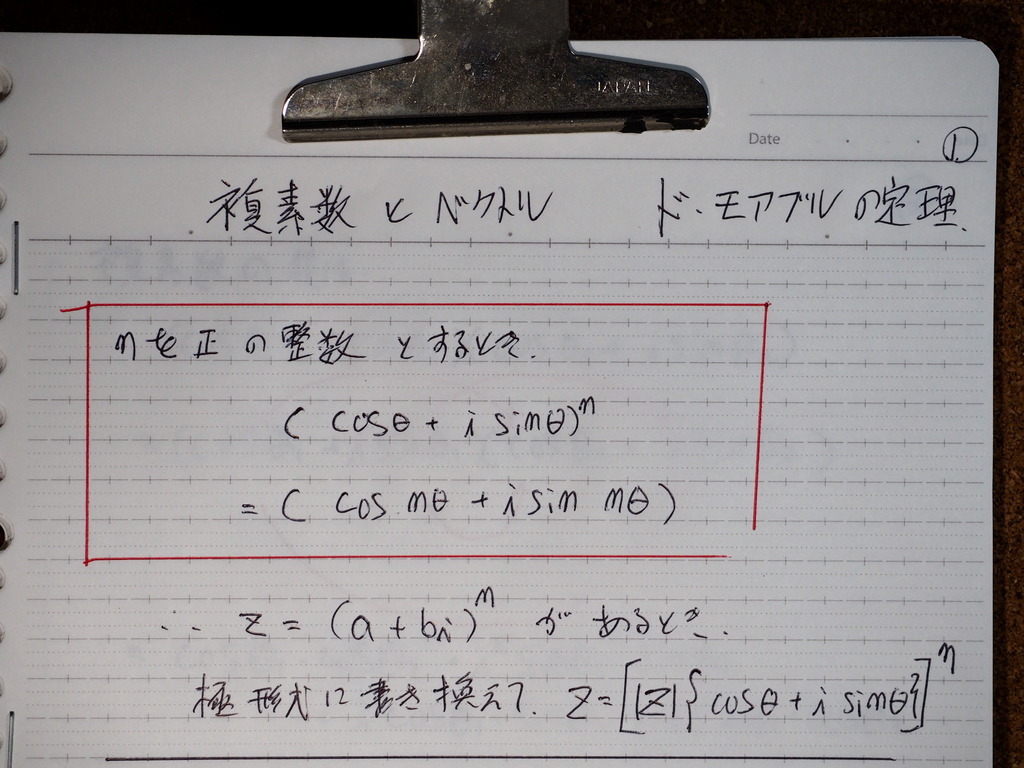 JAPAN
Date ・ ・ ①
複素数とベクトル ド・モアブルの定理.
nを正の整数とするとき.
( cosθ + i sinθ)ⁿ
= ( cos nθ + i sin nθ )
∴ z = (a + bi)ⁿ があるとき.
極形式に書き換えて. Z = [|Z|{cosθ + i sinθ}]ⁿ